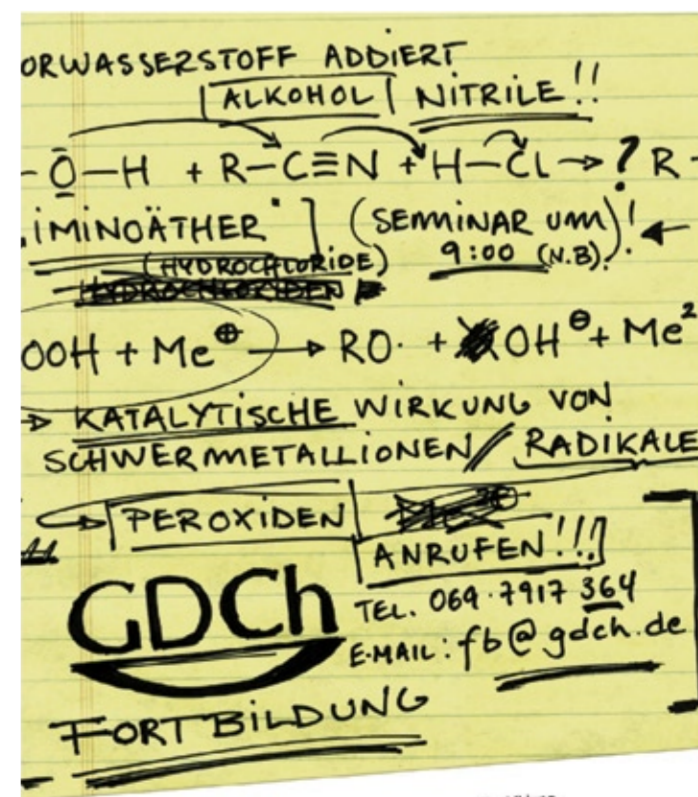 ORWASSERSTOFF ADDIERT
ALKOHOL NITRILE!!
-O-H + R-C≡N + H-Cl → ? R -
IMINOÄTHER" ] (SEMINAR UM)! ←
(HYDROCHLORIDE) 9:00 (N.B)!
HYDROCHLORIDEN
OOH + Me⊕ → RO· + OH⊖ + Me²
→ KATALYTISCHE WIRKUNG VON
SCHWERMETALLIONEN // RADIKALE
PEROXIDEN
ANRUFEN!!!
GDCh
TEL. 069·7917 364
E-MAIL: fb@gdch.de
FORTBILDUNG